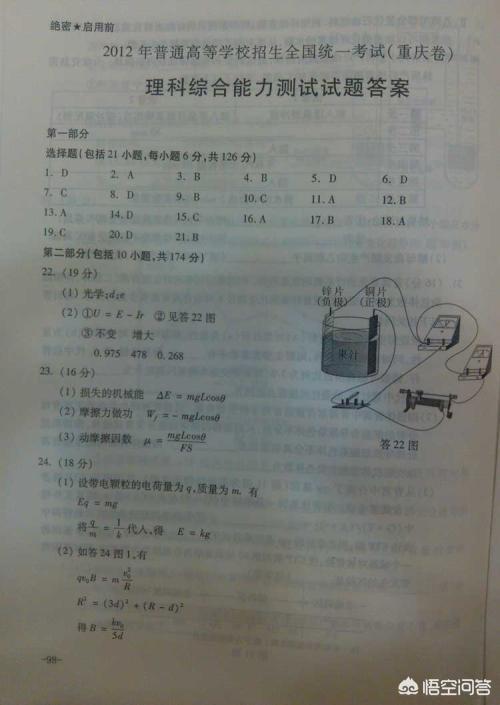 绝密★启用前
2012年普通高等学校招生全国统一考试(重庆卷)
理科综合能力测试试题答案
第一部分
选择题(包括21小题,每小题6分,共126分)
1. D 2. A 3. B 4. B 5. D 6. D
7. C 8. D 9. B 10. C 11. A 12. B
13. A 14. D 15. C 16. A 17. B 18. A
19. C 20. D 21. B
第二部分(包括10小题,共174分)
22. (19分)
(1) 光学;d;e
(2) ①U = E - Ir ②见答22图
③不变 增大
0.975 478 0.268
锌片 铜片
(负极) (正极)
果汁
答22图
23. (16分)
(1) 损失的机械能 ΔE = mgLcosθ
(2) 摩擦力做功 Wf = - mgLcosθ
(3) 动摩擦因数 μ = mgLcosθ/FS
24. (18分)
(1) 设带电颗粒的电荷量为q,质量为m. 有
Eq = mg
将 q/m = 1/k 代入,得 E = kg
(2) 如答24图1,有
qv₀B = m v₀²/R
R² = (3d)² + (R - d)²
得 B = kv₀/5d
-98-
悟空问答